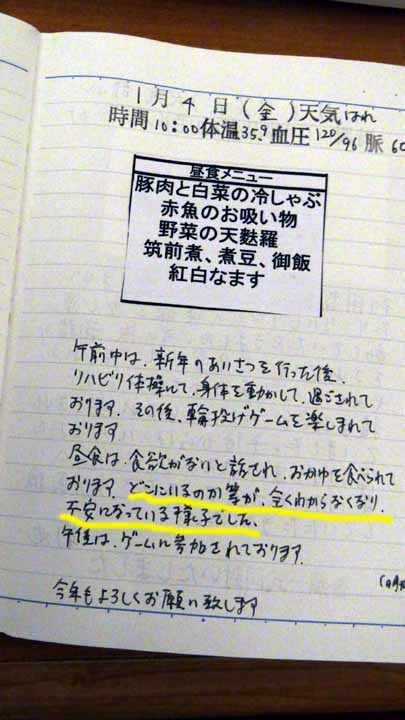 1月4日(金)天気はれ
時間10:00体温35.9血圧120/96脈60
昼食メニュー
豚肉と白菜の冷しゃぶ
赤魚のお吸い物
野菜の天麩羅
筑前煮、煮豆、御飯
紅白なます
午前中は、新年のあいさつを行った後、
リハビリ体操にて、身体を動かして、過ごされて
おります。その後、輪投げゲームを楽しまれて
おります
昼食は、食欲がないと話され、おかゆを食べられて
おります。どこにいるのか等が、全くわからなくなり、
不安になっている様子でした。
午後は、ゲームに参加されております。
今年もよろしくお願い致します